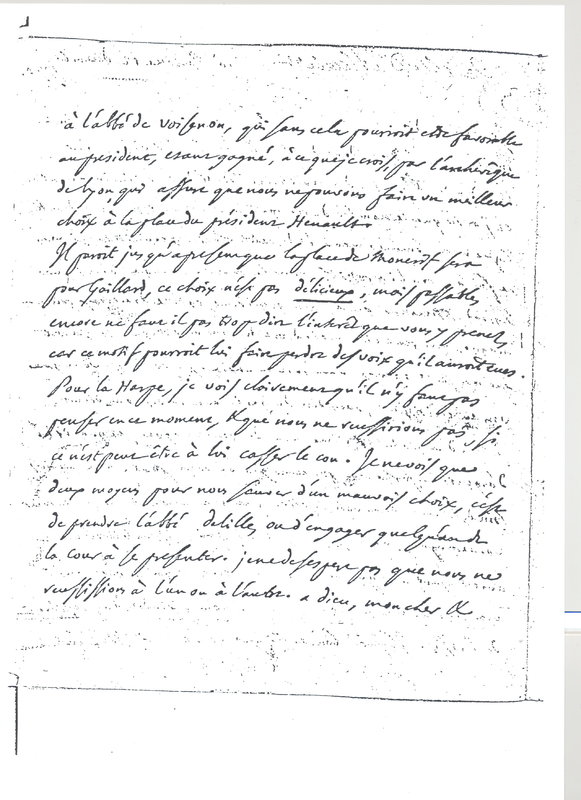 à l'abbé de Voisenon, qui sans cela pourroit etre favorable
au president, etant gagné, à ce que je crois, par l'archevêque
de Lyon, qui assure que nous ne pouvons faire un meilleur
choix à la place du président Henault.
Il paroit jusqu'à present que la place de Moncrif sera
pour Gaillard, ce choix n'est pas délicieux, mais passable,
encore ne faut il pas trop dire l'interêt que vous y prenez,
car ce motif pourroit lui faire perdre des voix qu'il auroit eues.
Pour la Harpe, je vois clairement qu'il n'y faut pas
penser en ce moment, & que nous ne reussirions pas, si
ce n'est peut être à lui casser le cou. Je ne vois que
deux moyens pour nous sauver d'un mauvois choix, c'est
de prendre l'abbé delille, ou d'engager quelqu'un de
la cour à se presenter. je ne desespere pas que nous ne
reussissions à l'un ou à l'autre. a dieu, mon cher &